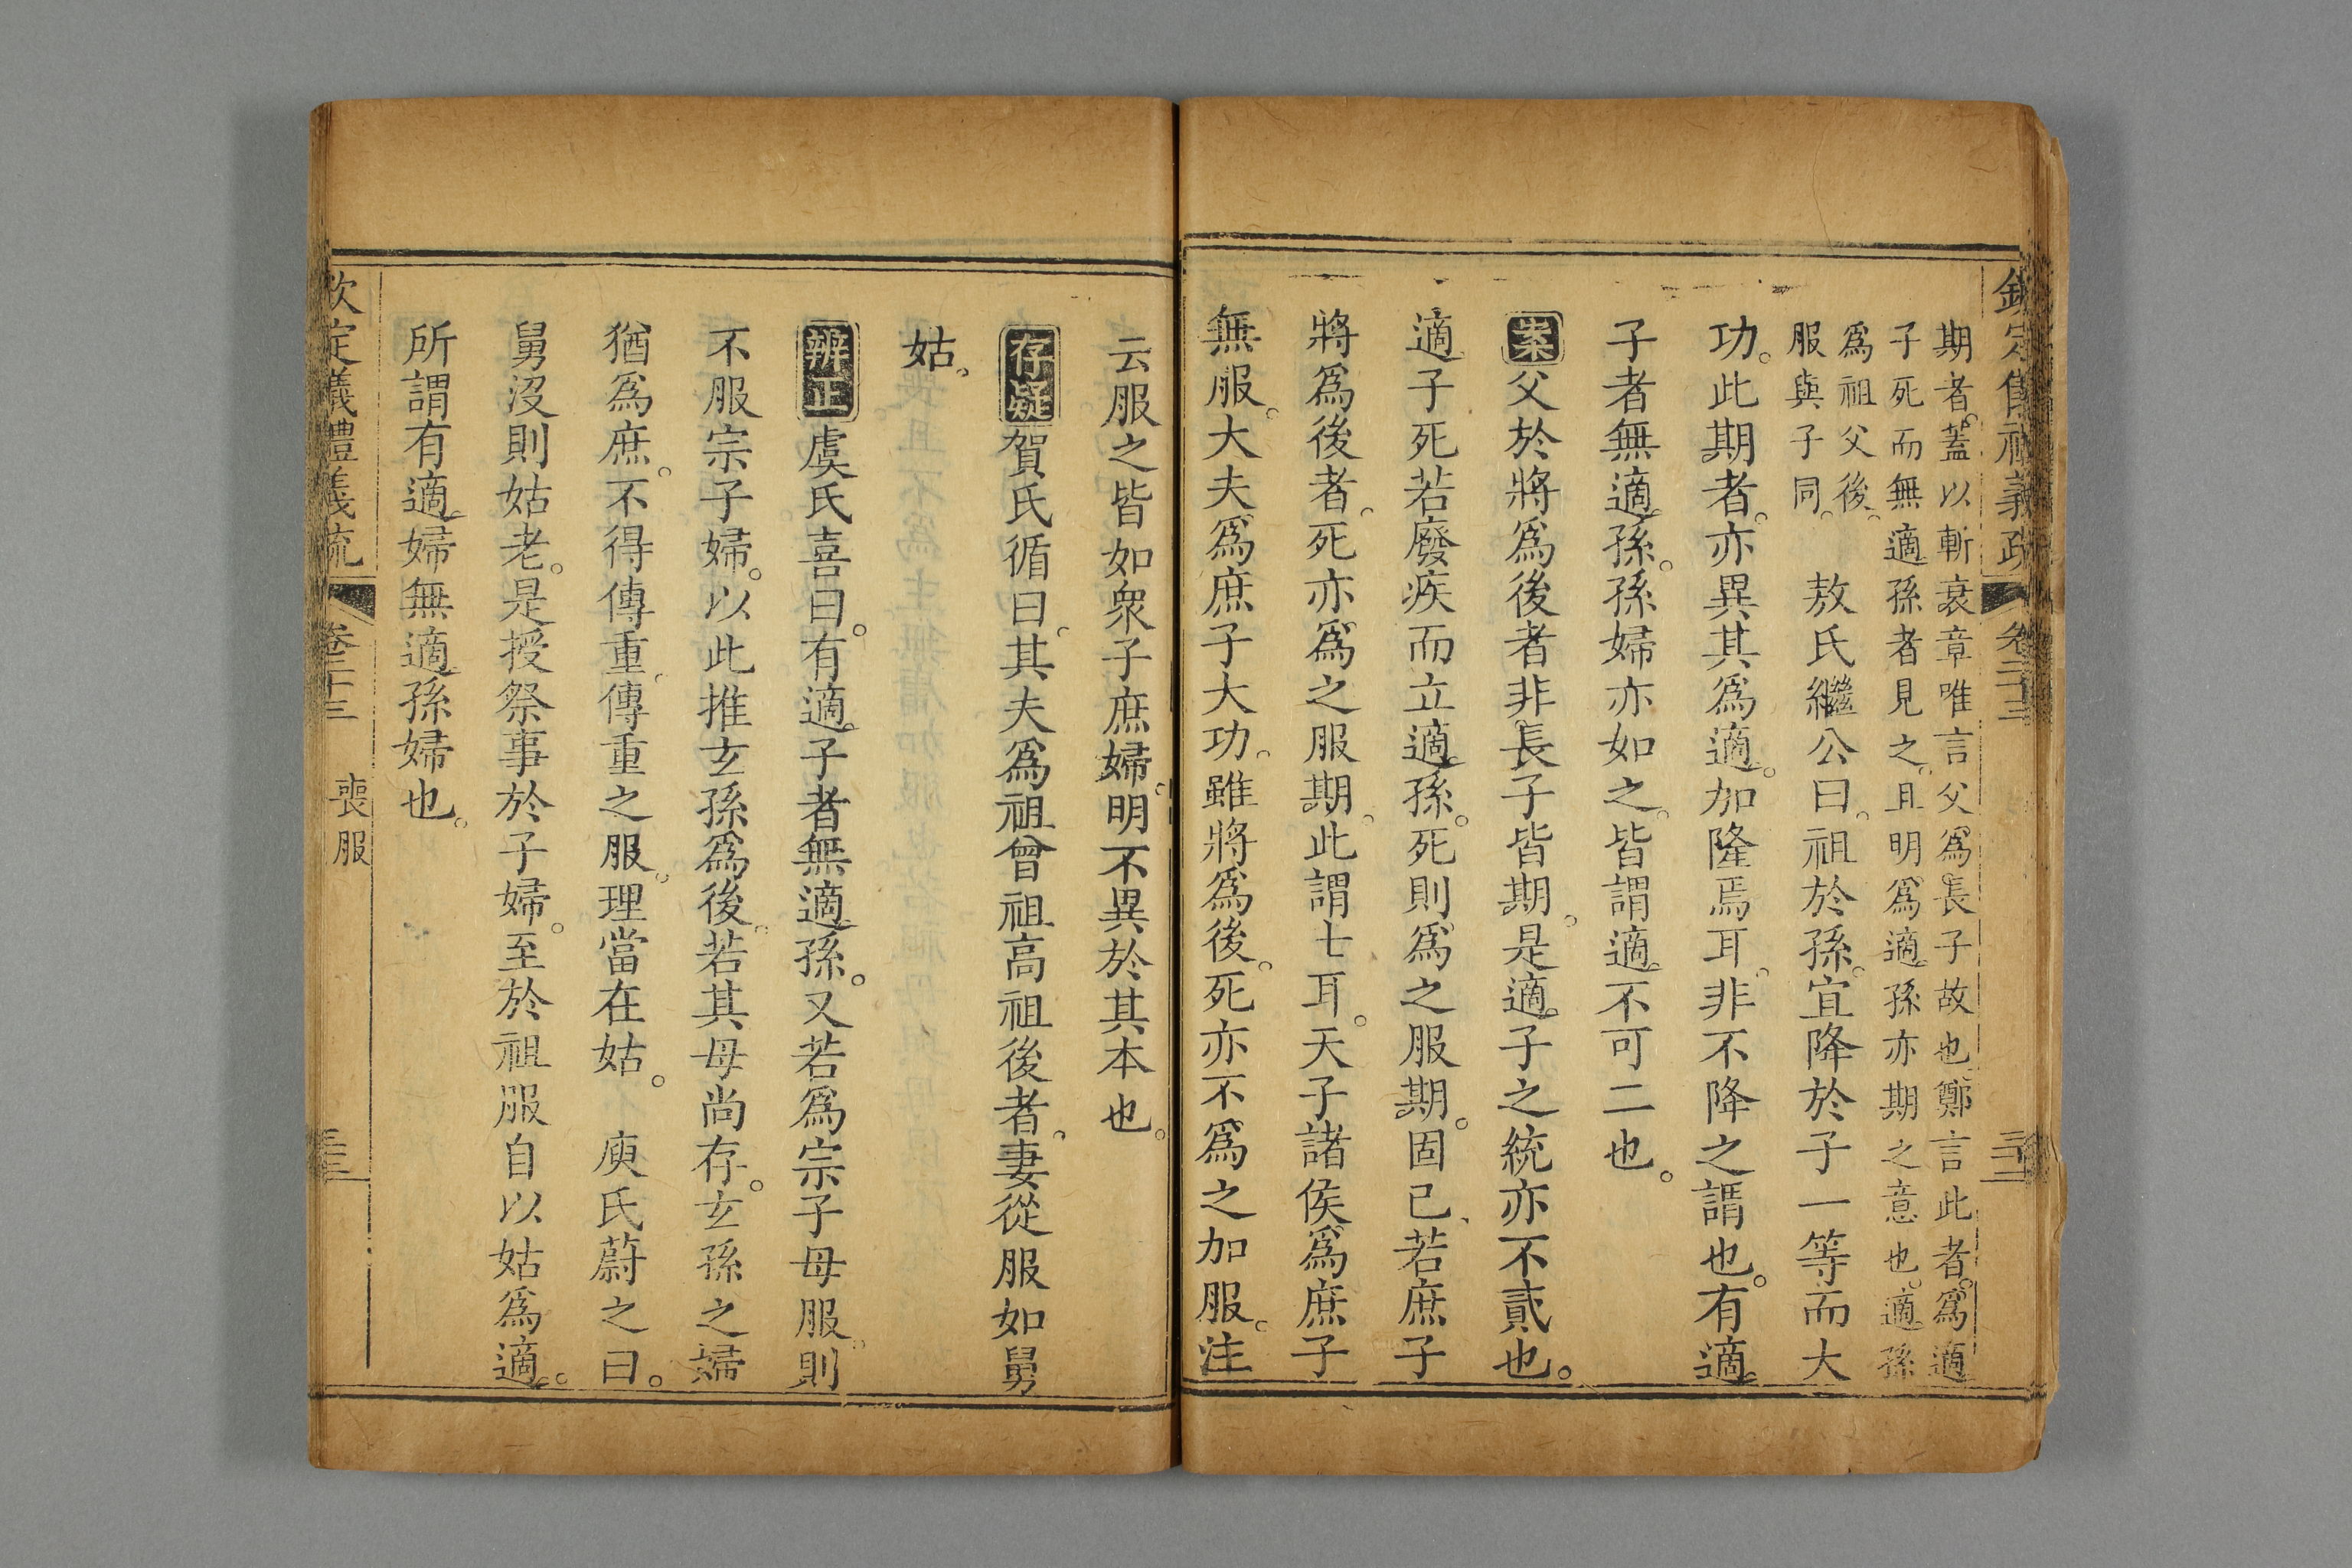 欽定儀禮義疏 卷二十三
期者蓋以斬衰章唯言父爲長子故也鄭言此者爲適
子死而無適孫者見之且明爲適孫亦期之意也適孫
爲祖父後
服與子同 敖氏繼公曰祖於孫宜降於子一等而大
功此期者亦異其爲適加隆焉耳非不降之謂也有適
子者無適孫孫婦亦如之皆謂適不可二也
案父於將爲後者非長子皆期是適子之統亦不貳也
適子死若廢疾而立適孫死則爲之服期固已若庶子
將爲後者死亦爲之服期此謂士耳天子諸侯爲庶子
無服大夫爲庶子大功雖將爲後死亦不爲之加服注
云服之皆如衆子庶婦明不異於其本也
存疑賀氏循曰其夫爲祖曾祖高祖後者妻從服如舅
姑
辨正虞氏喜曰有適子者無適孫又若爲宗子母服則
不服宗子婦以此推玄孫爲後若其母尚存玄孫之婦
猶爲庶不得傳重傳重之服理當在姑 庾氏蔚之曰
舅沒則姑老是授祭事於子婦至於祖服自以姑爲適
所謂有適婦無適孫婦也
欽定儀禮義疏 卷二十三 喪服